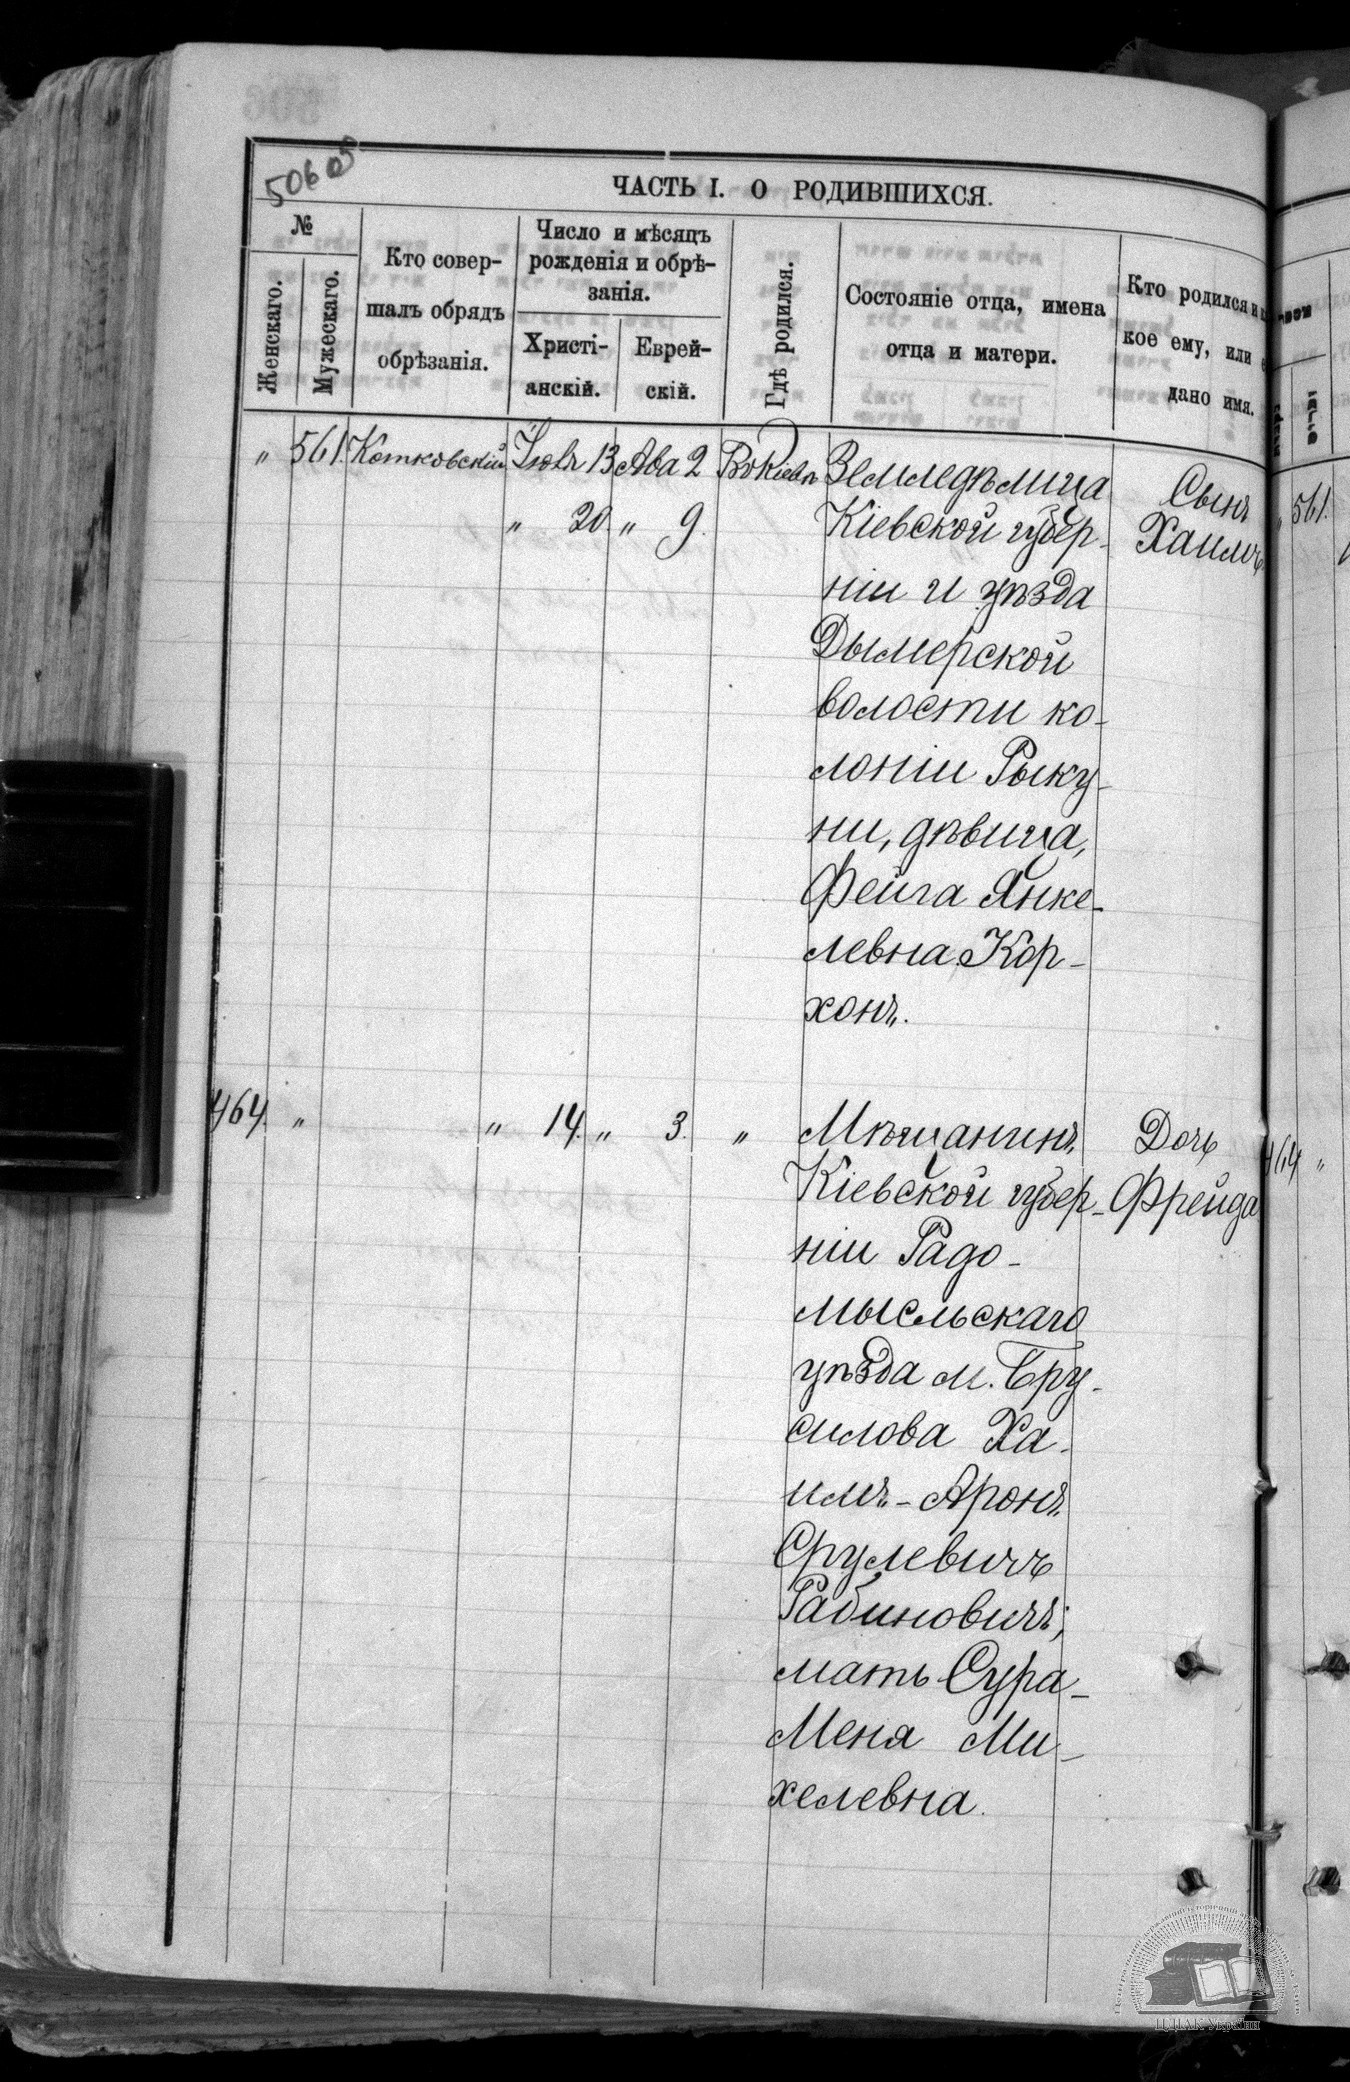 506 об
ЧАСТЬ I. О РОДИВШИХСЯ.
№
Женскаго.
Мужескаго.
Кто совер-
шалъ обрядъ
обрѣзанія.
Число и мѣсяцъ
рожденія и обрѣ-
занія.
Христі-
анскій.
Еврей-
скій.
Гдѣ родился.
Состояніе отца, имена
отца и матери.
Кто родился и
кое ему, или
дано имя.
„ 561. Котковскій Іюля 13 Ава 2 Въ Кіевѣ Земледѣлица Сынъ
„ 20 „ 9. Кіевской губер- Хаимъ
ніи и уѣзда
Дымерской
волости ко-
лоніи Рыку-
ни, дѣвица,
Фейга Янке-
левна Кор-
хонъ.
464. „ „ 14. „ 3. „ Мѣщанинъ Дочь
Кіевской губер- Фрейда
ніи Радо-
мысльскаго
уѣзда м. Бру-
силова Ха-
имъ-Аронъ
Срулевичъ
Рабиновичъ;
мать Сура-
Меня Ми-
хелевна.
„ 561.
464 „
ЦДІАК України